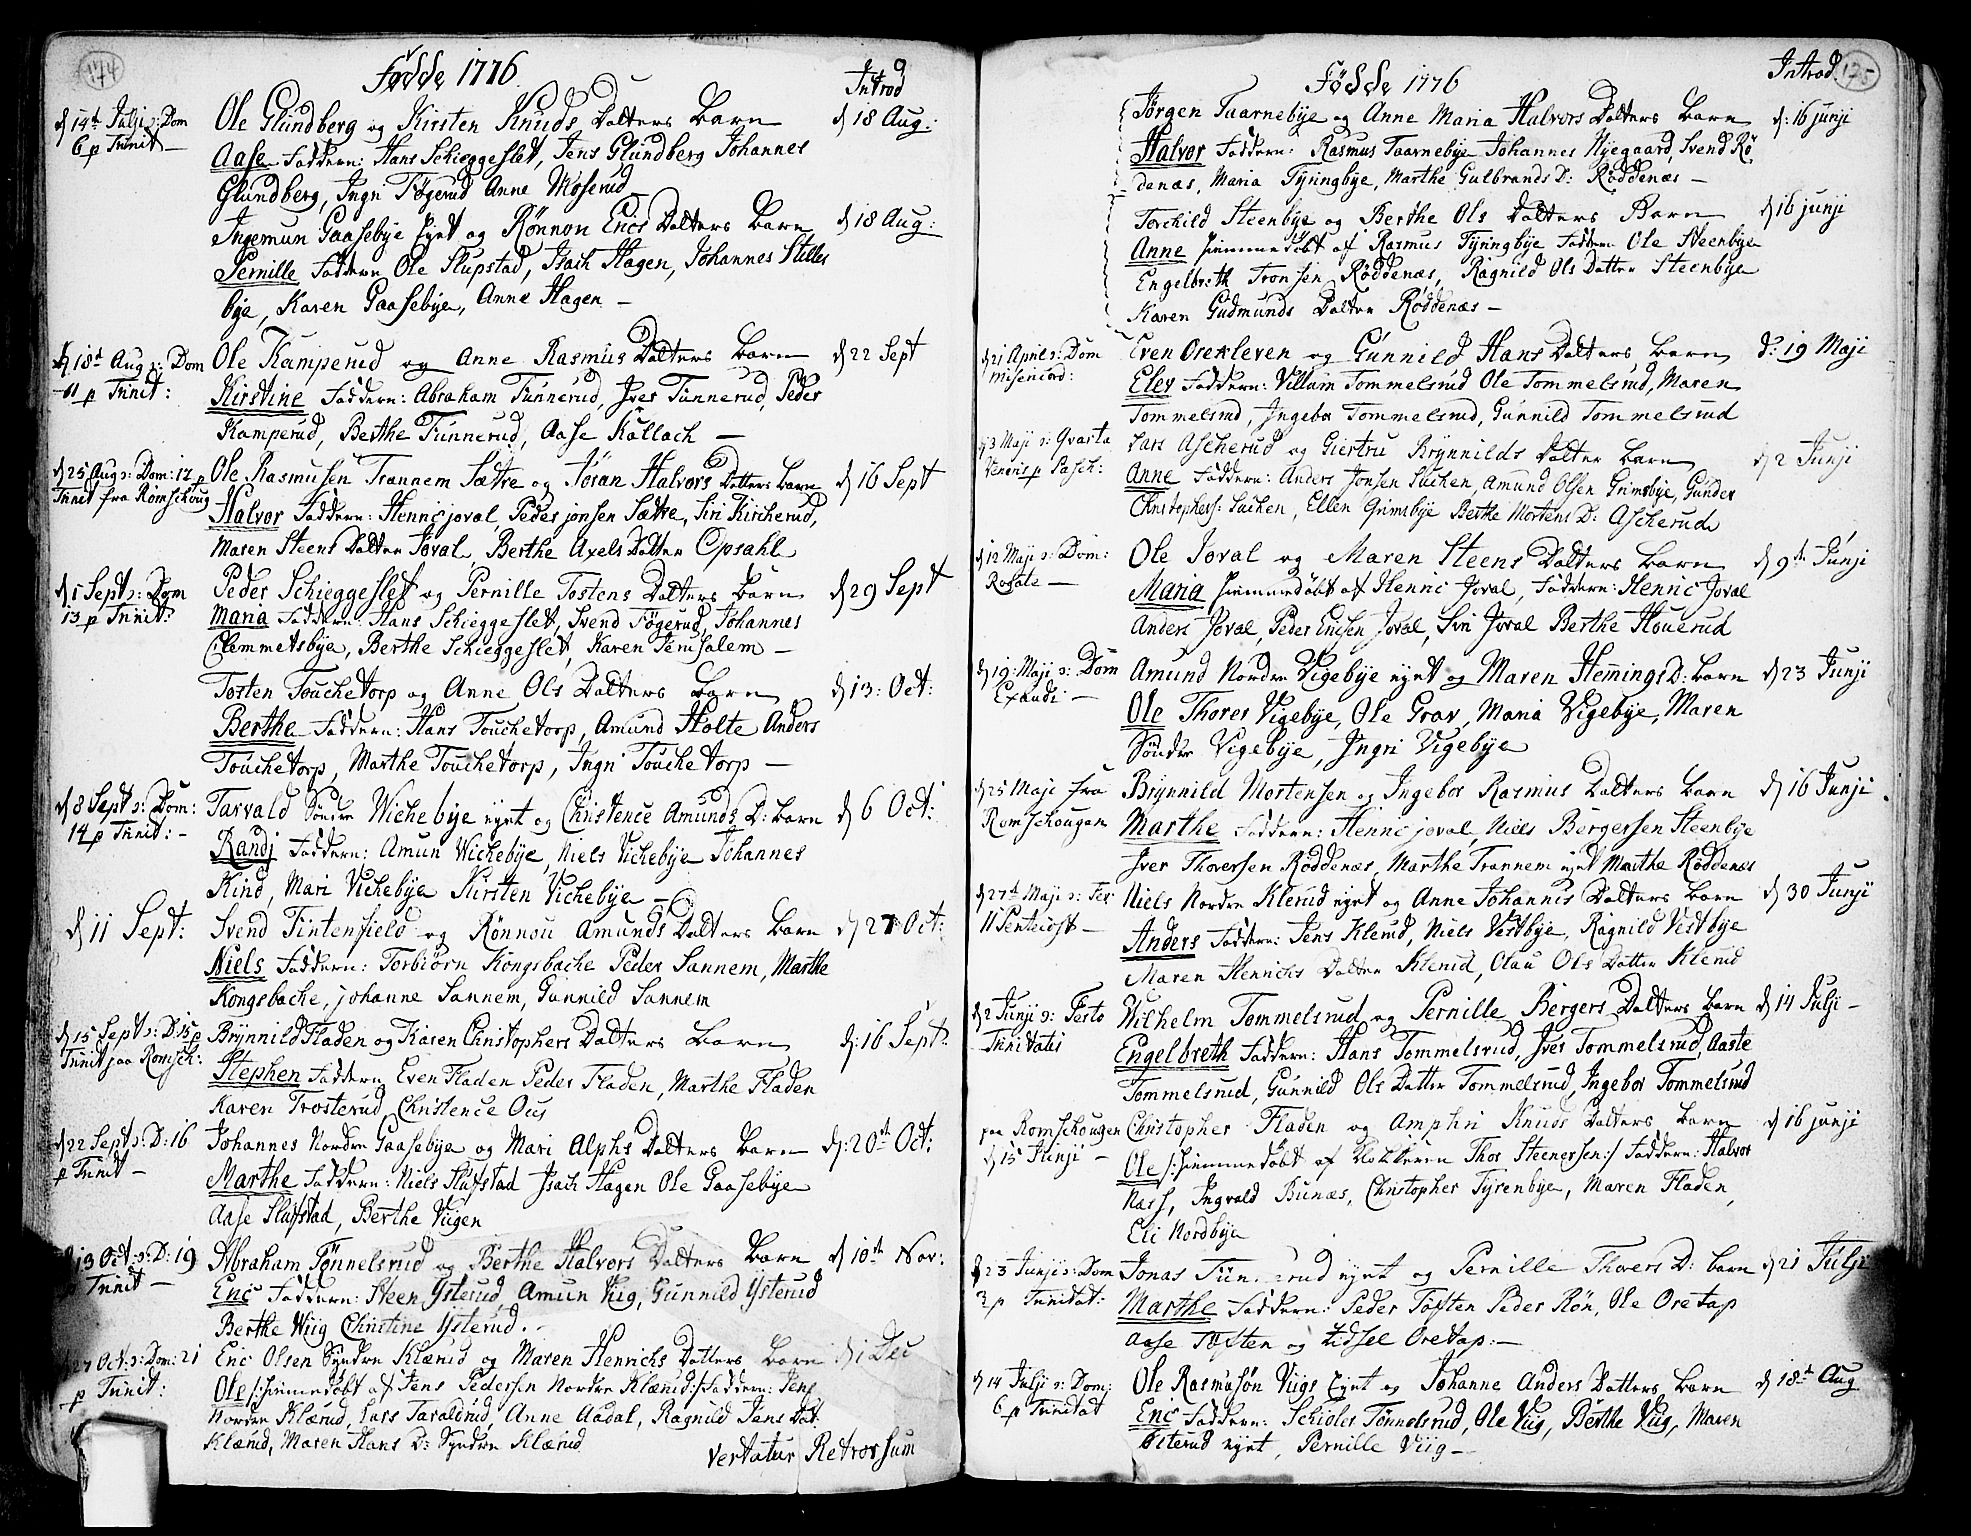 174
Fødde 1776
Introd
d 14de Julji ɔ: Dom
6 p Trinit —
Ole Glundberg og Kirsten Knuds Datters Barn
d 18 Aug:
Aase Faddern: Hans Schieggeslet, Jens Glundberg Johannes
Glundberg, Ingri Føgerud Anne Moserud
Ingemun Gaasebye Eyet og Rønnon Erics Datters Barn
d 18 Aug:
Pernille Faddern Ole Slupstad, Isach Hagen, Johannes Stilles
bye, Karen Gaasebye, Anne Hagen —
d 18de Aug ɔ: Dom
11 p Trinit:
Ole Kamperud og Anne Rasmus Datters Barn
d 22 Sept
Kirstine Faddern: Abraham Tunnerud, Iver Tunnerud, Peder
Kamperud, Berthe Tunnerud, Aase Kallach —
d 25 Aug ɔ: Dom: 12 p
Trinit fra Romschoug
Ole Rasmusen Trannem Sætre og Jøran Halvors Datters Barn
d 16 Sept
Halvor Faddern: Henric joval, Peder jonsen Sætre, Siri Kircherud,
Maren Steens Datter Joval, Berthe Axels Datter Opsahl
d 1 Sept ɔ: Dom
13 p Trinit:
Peder Schieggeslet og Pernille Tostens Datters Barn
d 29 Sept
Maria Faddern: Hans Schieggeslet, Svend Føgerud, Johannes
Clemmetsbye, Berthe Schieggeslet, Karen Jerusalem —
Tosten Touchetorp og Anne Ols Datters Barn
d 13: Oct:
Berthe Faddern: Hans Touchetorp, Amund Holte Anders
Touchetorp, Marthe Touchetorp, Ingri Touchetorp —
d 8 Sept ɔ: Dom:
14 p Trinit: —
Tarvald Søndre Wichebye eyet og Christence Amunds D: Barn
d 6 Oct:
Randj Faddern: Amun Wichebye, Niels Vichebye Johannes
Kind, Mari Vichebye Kirsten Vichebye —
d 11 Sept:
Svend Tintenfield og Rønnou Amunds Datters Barn
d 27 Oct:
Niels Faddern: Torbiørn Kongsbache Peder Sannem, Marthe
Kongsbache, johanne Sannem, Gunnild Sannem
d 15 Sept ɔ: D: 15 p
Trinit paa Romsch:
Brynnild Fladen og Karen Christophers Datters Barn
d: 16 Sept:
Stephen Faddern Even Fladen Peder Fladen, Marthe Fladen
Karen Trosterud, Christence Ous
d 22 Sept ɔ: D: 16
p Trinit —
Johannes Nordre Gaasebye og Mari Alphs Datters Barn
d: 20de Oct:
Marthe Faddern: Niels Slufstad Isach Hagen Ole Gaasebye
Aase Slufstad, Berthe Viigen
13 Oct ɔ: D: 19
p Trinit —
Abraham Tønnelsrud og Berthe Halvors Datters Barn
d 10de Nov:
Eric Faddern: Steen Ysterud, Amun Viig, Gunnild Ysterud
Berthe Wiig Christine Ysterud. —
27 Oct: ɔ: Dom: 21
p Trinit:
Eric Olsen Syndre Klærud og Maren Henrichs Datters Barn
d 1 Dec
Ole /: hiemmedøbt af Jens Pedersen Nordre Klærud :/ Faddern: Jens
Nordre Klærud, Lars Taraldrud, Anne Aadal, Ragnild Jens Dat.
Klærud, Maren Hans D: Syndre Klærud
Vertatur Retrorsum
175
Fødde 1776
Introd.
Jørgen Taarnebye og Anne Maria Halvors Datters Barn
d: 16 junji
Halvor Faddern: Rasmus Taarnebye Johannes Nyegaard, Svend Rø
denæs, Maria Tyringbye, Marthe Gulbrands D: Røddenæs —
Torchild Steenbye og Berthe Ols Datters Barn
d 16 junji
Anne hiemmedøbt af Rasmus Tyringbye Faddern Ole Steenbye
Engelbreth Tronsen Røddenæs, Ragnild Ols Datter Steenbye
Karen Gudmunds Datter Røddenæs —
d 21 April ɔ: Dom
misericord:
Even Oserleven og Gunnild Hans Datters Barn
d: 19 Maji
Elev Faddern: Villam Tommelsrud Ole Tommelsrud, Maren
Tommelsrud, Ingebor Tommelsrud, Gunnild Tommelsrud
d 3 Maji ɔ: Qvarta
Veneris p Pasch:
Lars Ascherud og Giertru Brynnilds Datter Barn
d 2 Junji
Anne Faddern: Anders Jonsen Suchen, Amund Olsen Grimsbye, Gunder
Christophers: Suchen, Ellen Grimsbye Berthe Mortens D: Ascherud
d 12 Maji ɔ: Dom:
Rogate —
Ole Joval og Maren Steens Datters Barn
d 9de Junji
Maria hiemmedøbt af Henric Joval, Faddern: Henric Joval
Anders Joval, Peder Ericsen Joval, Siri Joval Berthe Houerud
d 19: Maji ɔ: Dom
Exaudi —
Amund Nordre Vigebye eyet og Maren Hemings D: Barn
d 23 Junji
Ole Thorer Vigebye, Ole Grav, Maria Vigebye, Maren
Søndre Vigebye, Ingri Vigebye
d 25 Maji fra
Romschougen
Brynnild Mortensen og Ingebor Rasmus Datters Barn
d 16 Junji
Marthe Faddern: Henric joval, Niels Børgersen Steenbye
Iver Thoversen Røddenæs, Marthe Trannem eyet Marthe Røddenæs
d 27de Maji ɔ: Fer
II Pentecost —
Niels Nordre Klerud eyet og Anne Johannis Datters Barn
d 30 Junji
Anders Faddern: Jens Klerud, Niels Vestbye, Ragnild Vestbye
Maren Henrichs Datter Klerud, Olau Ols Datter Klerud
d 2 Junji ɔ: Festo
Trinitatis
Wilhelm Tommelsrud og Pernille Børgers Datters Barn
d 14 Julji —
Engelbreth Faddern: Hans Tommelsrud, Iver Tommelsrud, Aaste
Tommelsrud, Gunnild Ols Datter Tommelsrud, Ingebor Tommelsrud
paa Romschougen
d 15 Junji —
Christopher Fladen og Amphri Knuds Datters Barn
d 16 junji
Ole /: hiemmedøbt af Klockeren Thor Steenersen :/ Faddern: Halvor
Nass, Ingvald Bunæs, Christopher Tyrenbye, Maren Fladen,
Eli Nordbye
d 23 Junji ɔ: Dom
3 p Trinitat:
Jonas Tun rud eyet og Pernille Thorers D: barn
d 21 Julji
Marthe Faddern: Peder Toften Peder Røn, Ole Oretap
Aase Toften og Lidsel Oretap: —
d 14 Julji ɔ: Dom:
6 p Trinitat
Ole Rasmusøn Viigs Eyet og Johanne Anders Datters Barn
d 18de Aug
Eric Faddern: Schioler Tønnelsrud, Ole Viig, Berthe Viig, Maren
Ysterud eyet, Pernille Viig —